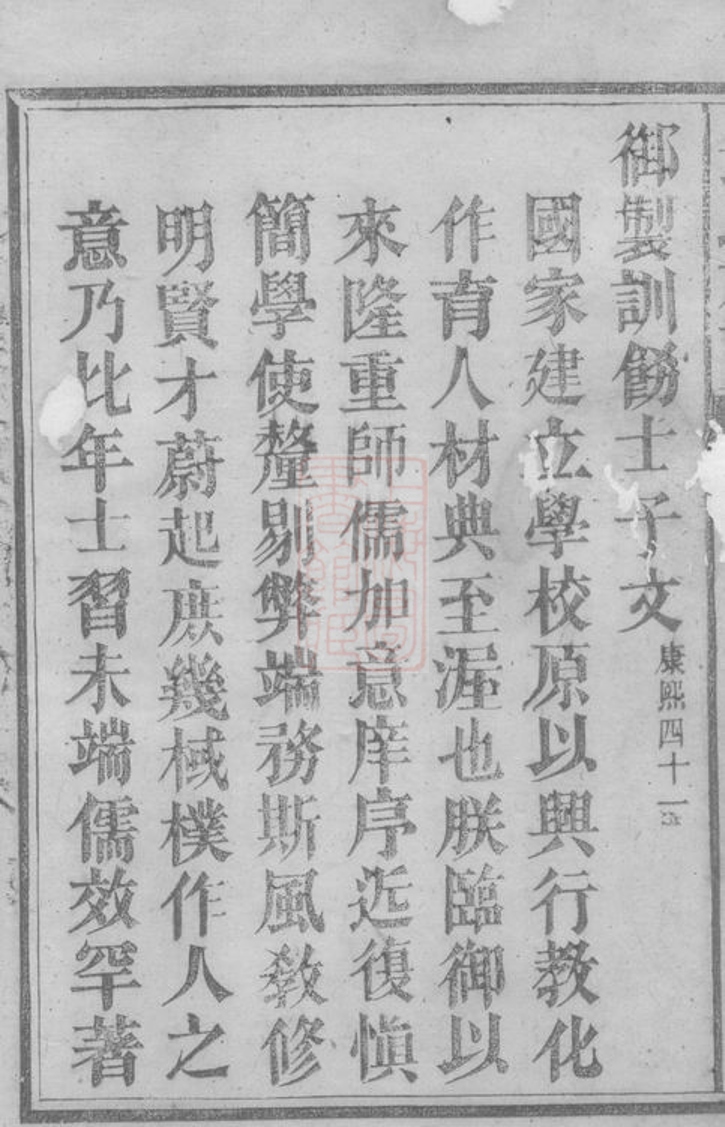 御製訓飭士子文康熙四十一年
國家建立學校原以興行教化
作育人材典至渥也朕臨御以
來隆重師儒加意庠序近復愼
簡學使釐剔弊端務斯風教修
明賢才蔚起庶幾棫樸作人之
意乃比年士習未端儒效罕著